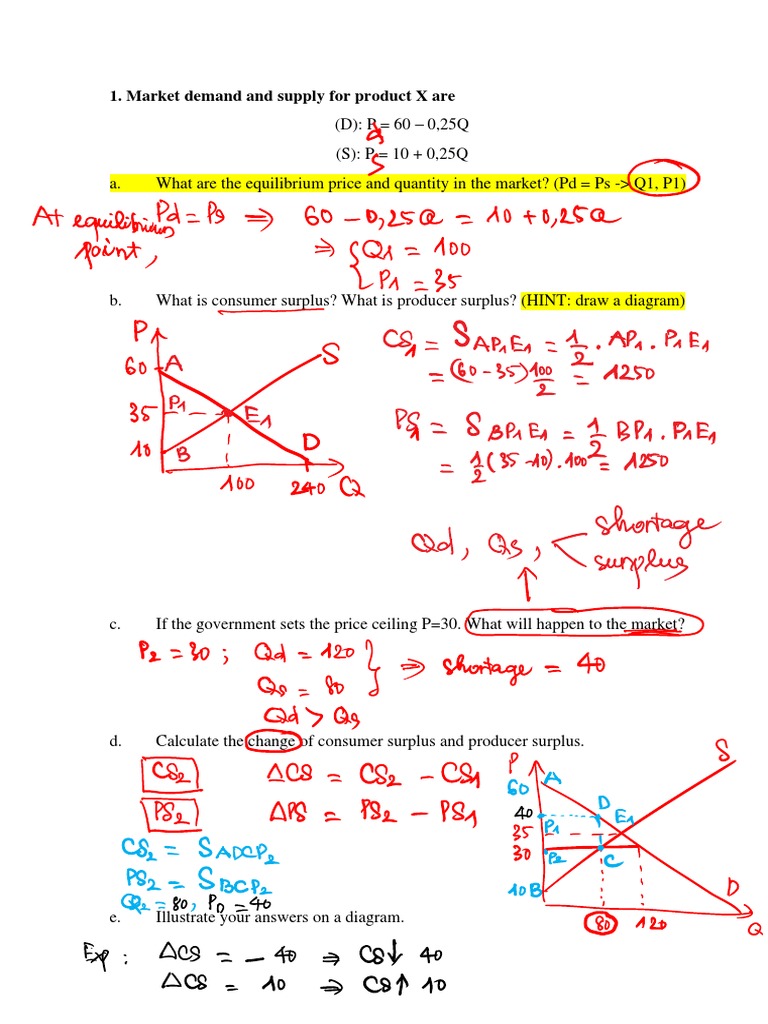 1. Market demand and supply for product X are
(D): Pd = 60 – 0,25Q
(S): Ps = 10 + 0,25Q
a. What are the equilibrium price and quantity in the market? (Pd = Ps -> Q1, P1)
At equilibrium point, Pd = Ps => 60 - 0,25Q = 10 + 0,25Q
=> { Q1 = 100
P1 = 35
b. What is consumer surplus? What is producer surplus? (HINT: draw a diagram)
P
60 A
S
35 P1 E1
10 B
D
100 240 Q
CS1 = SAP1E1 = 1/2 . AP1 . P1E1
= (60 - 35) 100/2 = 1250
PS1 = SBP1E1 = 1/2 BP1 . P1E1
= 1/2 (35 - 10) . 100 = 1250
Qd, Qs, < shortage
surplus
c. If the government sets the price ceiling P=30. What will happen to the market?
P2 = 30 ; Qd = 120
Qs = 80 } => shortage = 40
Qd > Qs
d. Calculate the change of consumer surplus and producer surplus.
CS2 ΔCS = CS2 - CS1
PS2 ΔPS = PS2 - PS1
CS2 = SADCP2
PS2 = SBCP2
Q2 = 80, PD = 40
P
S
60 A
40 D
35 P1 E1
30 P2 C
10 B
D
80 120 Q
e. Illustrate your answers on a diagram.
Exp : ΔCS = - 40 => CS↓ 40
ΔCS = 10 => CS↑ 10